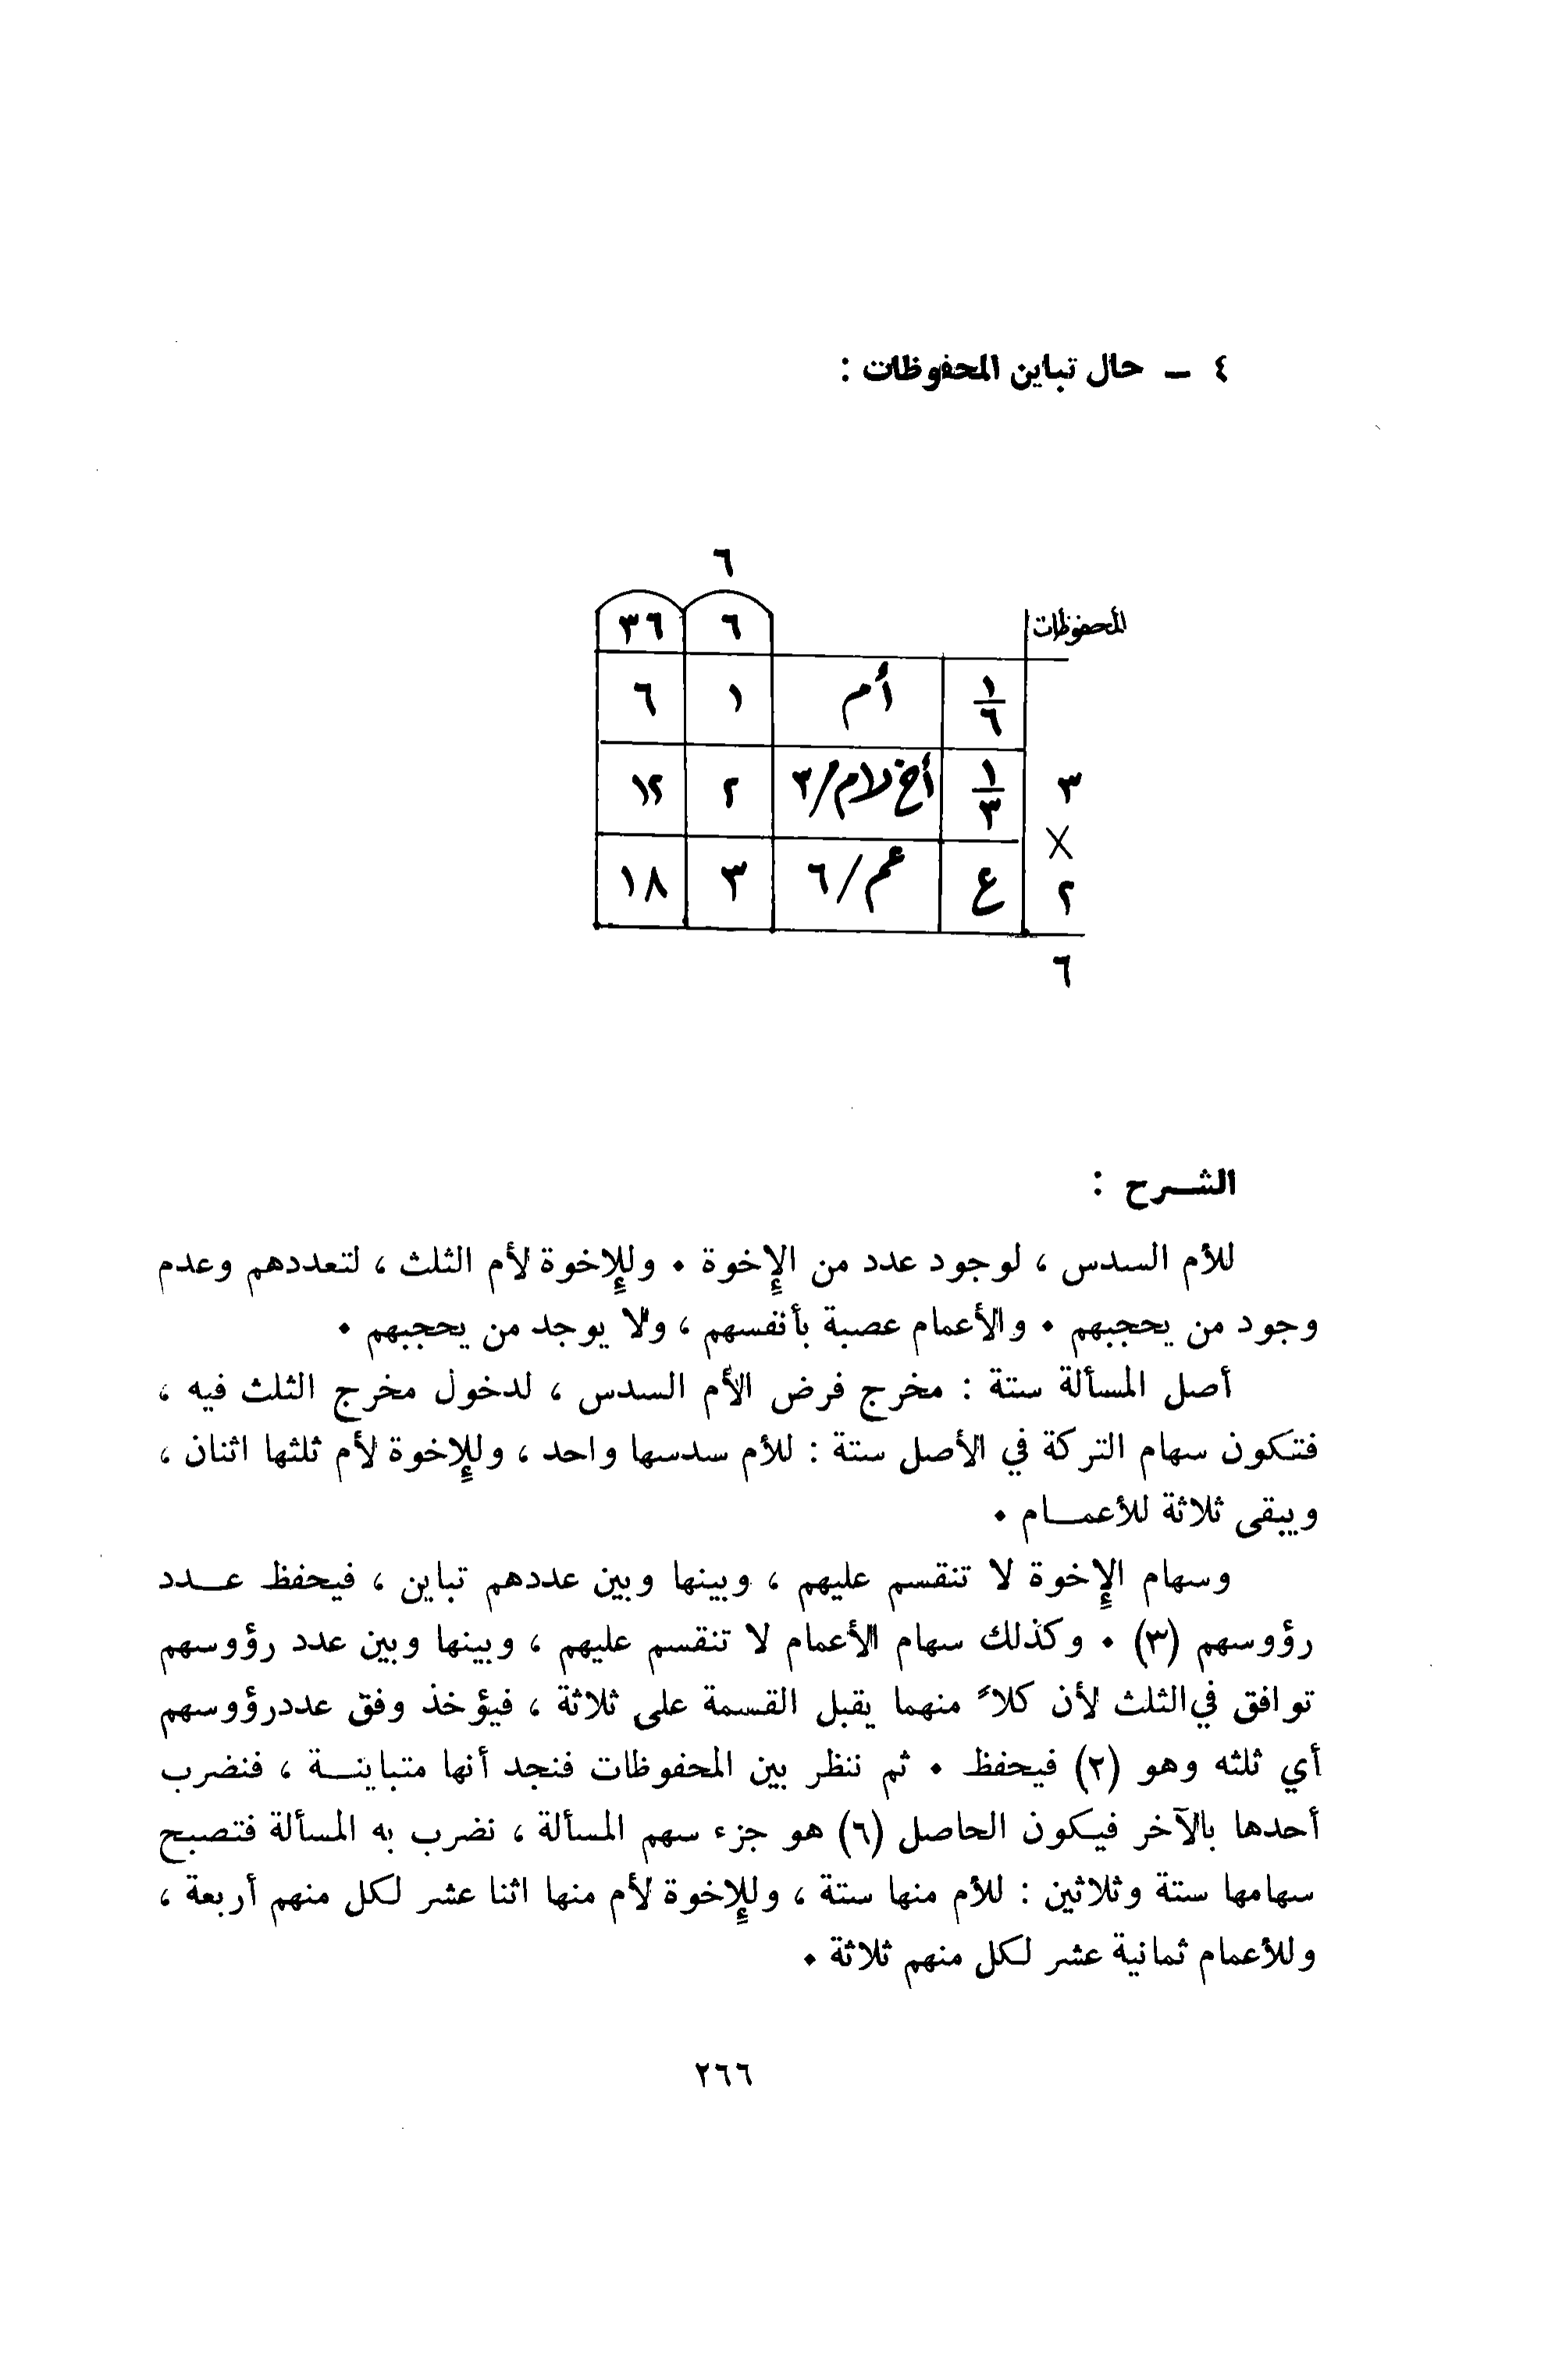 ٤ – حال تباين المحفوظات :
٦
المحفوظات ٦ ٣٦
١/٦ أم ١ ٦
٣ ١/٣ أخ لأم/٣ ٢ ١٢
×
٢ ع عم/٦ ٣ ١٨
٦
الشـرح :
للأم السدس ، لوجود عدد من الإخوة . وللإخوة لأم الثلث ، لتعددهم وعدم
وجود من يحجبهم . والأعمام عصبة بأنفسهم ، ولا يوجد من يحجبهم .
أصل المسألة ستة : مخرج فرض الأم السدس ، لدخول مخرج الثلث فيه ،
فتكون سهام التركة في الأصل ستة : للأم سدسها واحد ، وللإخوة لأم ثلثها اثنان ،
ويبقى ثلاثة للأعمـام .
وسهام الإخوة لا تنقسم عليهم ، وبينها وبين عددهم تباين ، فيحفظ عـدد
رؤوسهم (٣) . وكذلك سهام الأعمام لا تنقسم عليهم ، وبينها وبين عدد رؤوسهم
توافق في الثلث لأن كلاً منهما يقبل القسمة على ثلاثة ، فيؤخذ وفق عدد رؤوسهم
أي ثلثه وهو (٢) فيحفظ . ثم ننظر بين المحفوظات فنجد أنها متباينـة ، فنضرب
أحدها بالآخر فيكون الحاصل (٦) هو جزء سهم المسألة ، نضرب به المسألة فتصبح
سهامها ستة وثلاثين : للأم منها ستة ، وللإخوة لأم منها اثنا عشر لكل منهم أربعة ،
وللأعمام ثمانية عشر لكل منهم ثلاثة .
٢٦٦